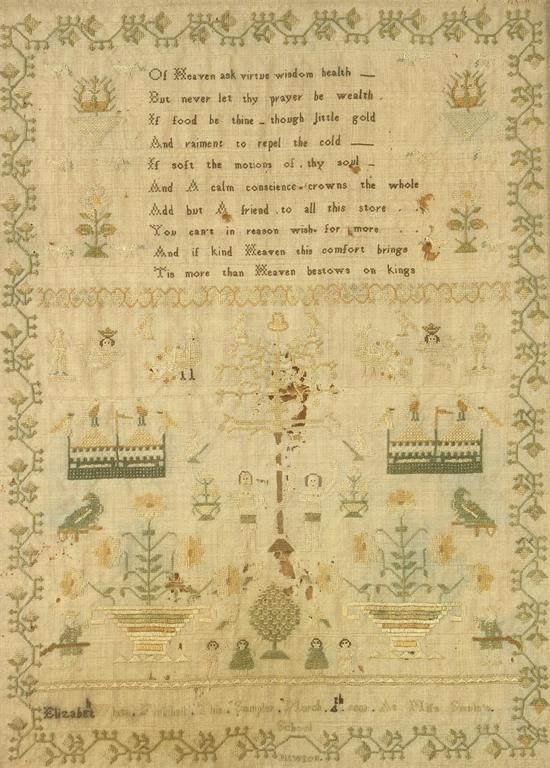 Of Heaven ask virtue wisdom health
But never let thy prayer be wealth.
If food be thine - though little gold
And raiment to repel the cold
If soft the motions of thy soul
And A calm conscience crowns the whole
Add but A friend to all this store . .
You can't in reason wish for more . . .
And if kind Heaven this comfort brings
'Tis more than Heaven bestows on kings
Elizabeth Finished This Sampler March At Miss
School